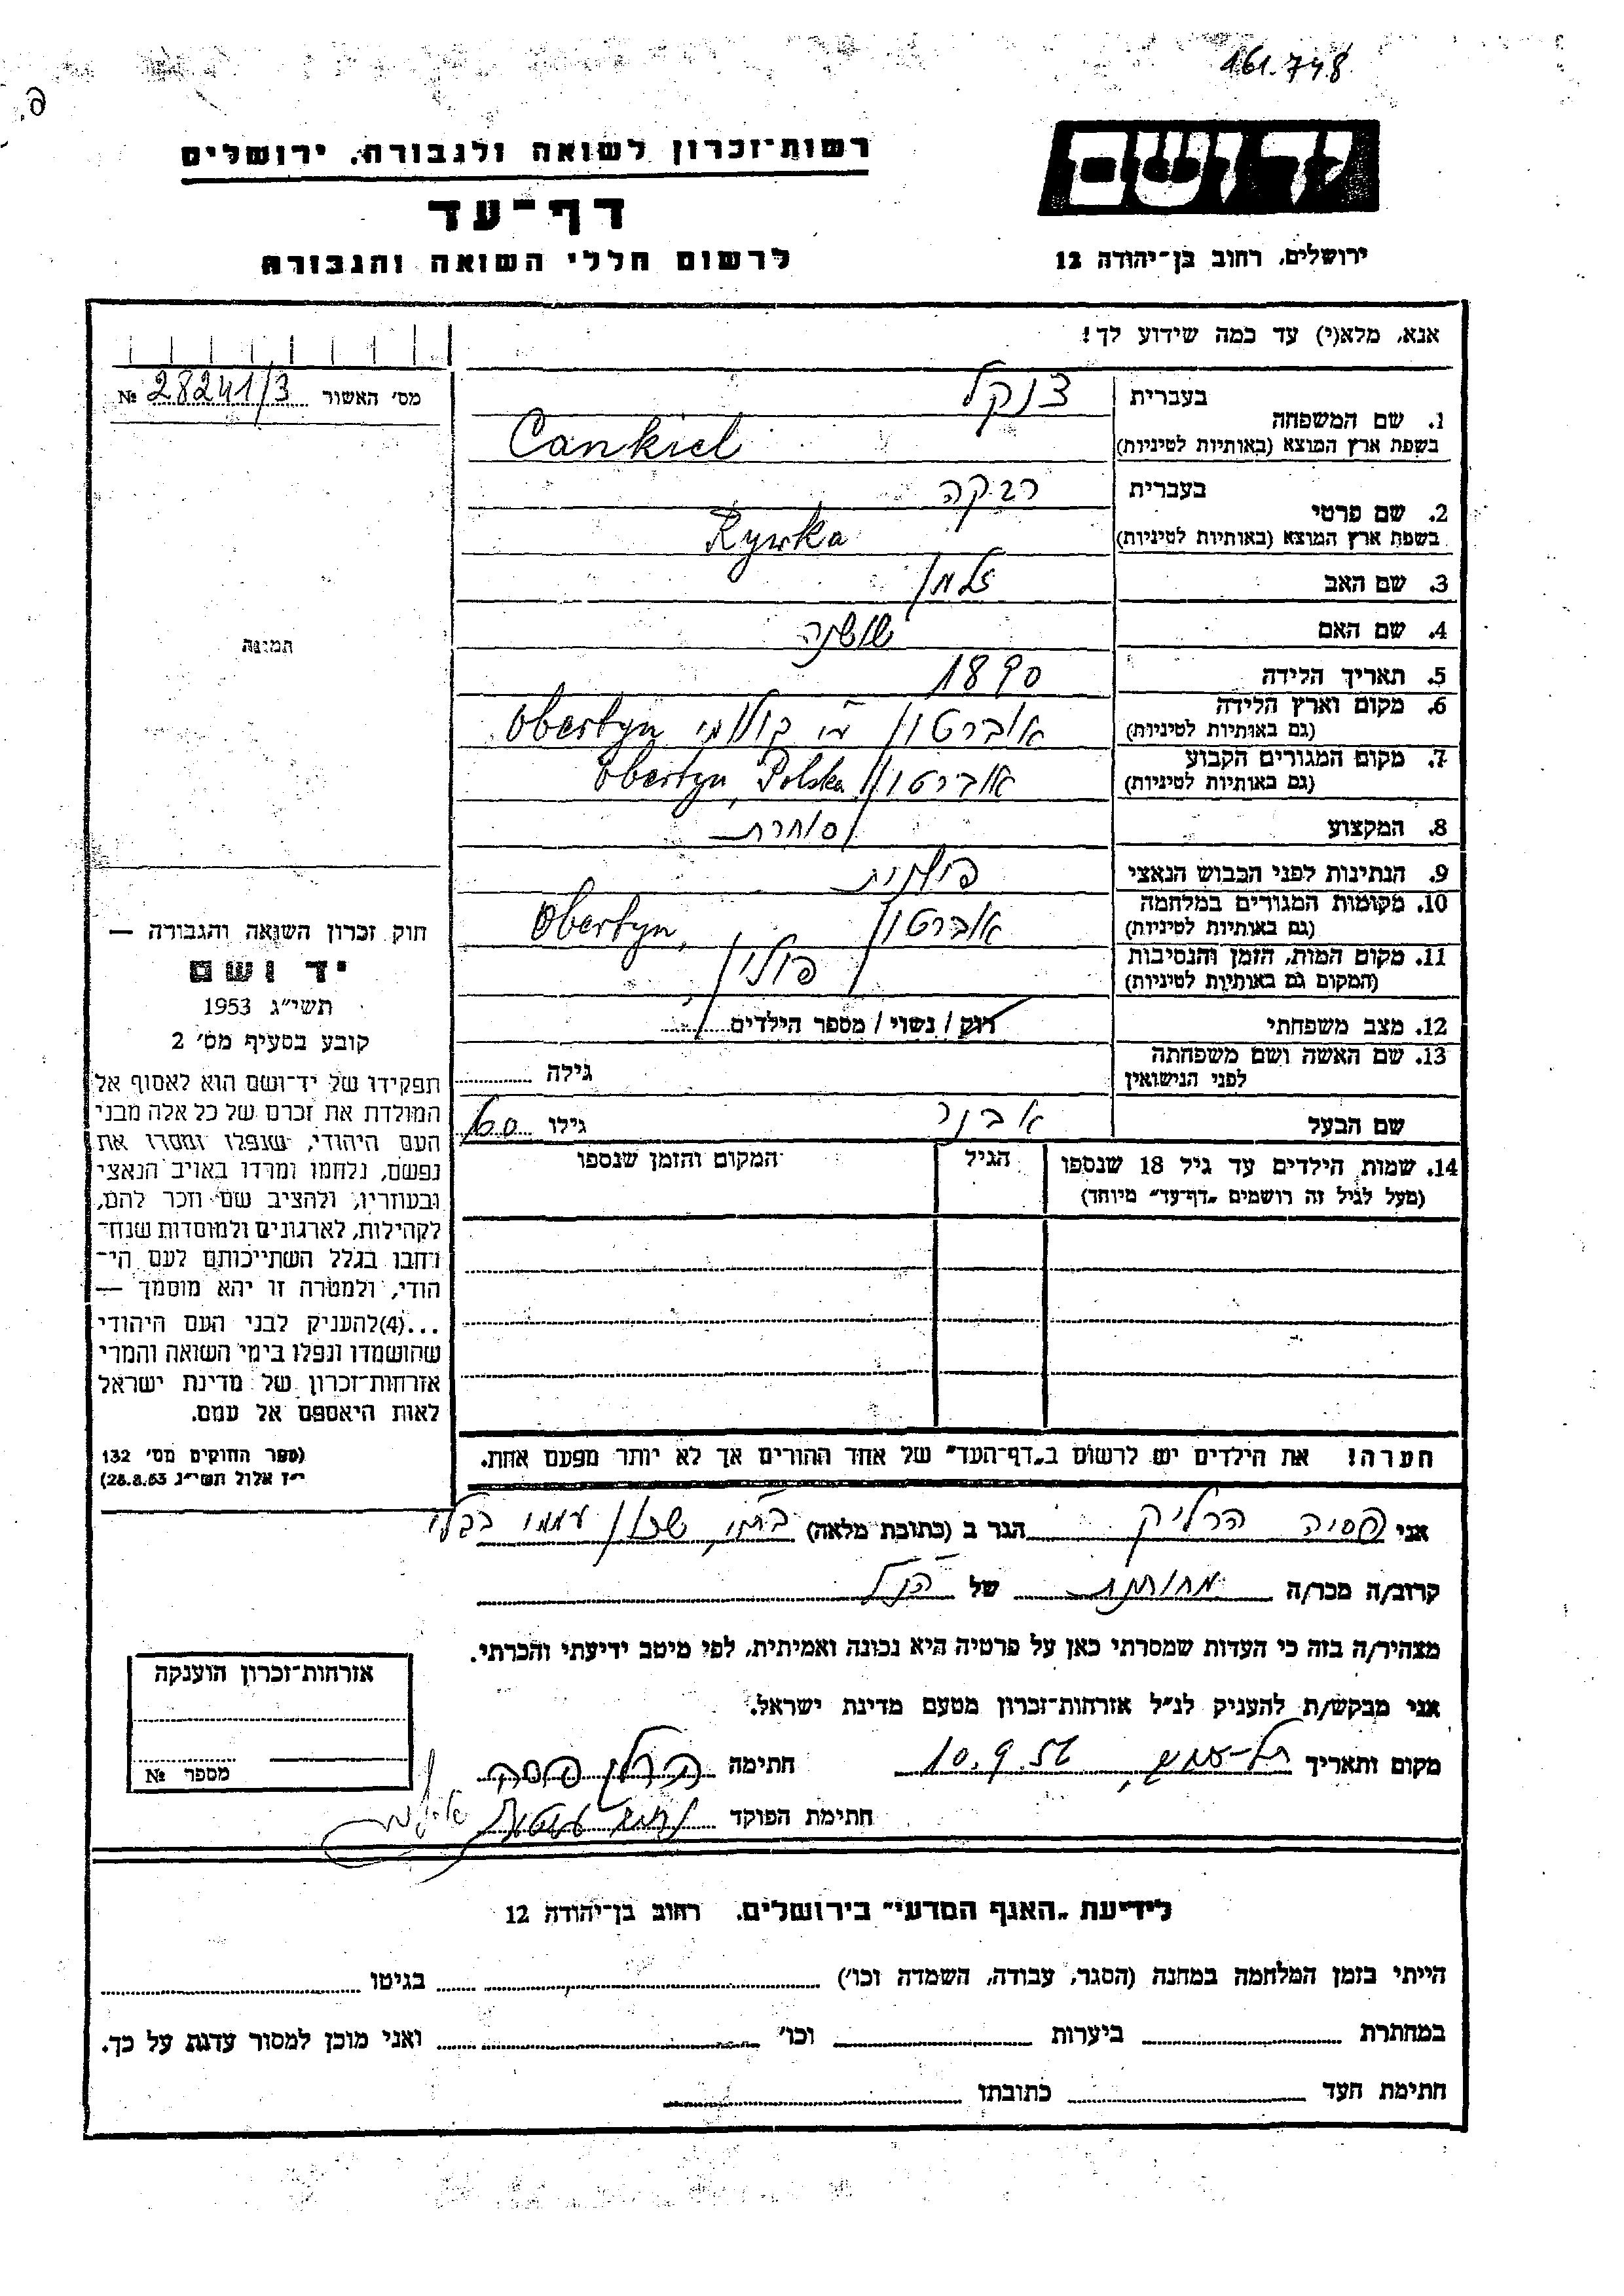 161.748
רשות־זכרון לשואה ולגבורה, ירושלים
דף־עד
לרשום חללי השואה והגבורה
יד ושם
ירושלים, רחוב בן־יהודה 12
אנא, מלא(י) עד כמה שידוע לך!
מס׳ האשור 28241/3 №
בעברית צנקל
1. שם המשפחה
בשפת ארץ המוצא (באותיות לטיניות) Cankiel
בעברית רבקה
2. שם פרטי
בשפת ארץ המוצא (באותיות לטיניות) Rywka
3. שם האב זלמן
4. שם האם שושנה
5. תאריך הלידה 1890
6. מקום וארץ הלידה
(גם באותיות לטיניות) אוברטין Obertyn
7. מקום המגורים הקבוע
(גם באותיות לטיניות) אוברטין Obertyn, Polska
8. המקצוע סוחרת
9. הנתינות לפני הכבוש הנאצי פולנית
10. מקומות המגורים במלחמה
(גם באותיות לטיניות) אוברטין Obertyn,
11. מקום המות, הזמן והנסיבות
(המקום גם באותיות לטיניות) פולין
12. מצב משפחתי רוק / נשוי / מספר הילדים
13. שם האשה ושם משפחתה
לפני הנישואין גילה
שם הבעל אבנר גילו 60
14. שמות הילדים עד גיל 18 שנספו הגיל המקום והזמן שנספו
(מעל לגיל זה רושמים „דף־עד״ מיוחד)
הערה! את הילדים יש לרשום ב„דף־העד״ של אחד ההורים אך לא יותר מפעם אחת.
תמונה
חוק זכרון השואה והגבורה —
יד ושם
תשי״ג 1953
קובע בסעיף מס׳ 2
תפקידו של יד־ושם הוא לאסוף אל
המולדת את זכרם של כל אלה מבני
העם היהודי, שנפלו ומסרו את
נפשם, נלחמו ומרדו באויב הנאצי
ובעוזריו, ולהציב שם וזכר להם,
לקהילות, לארגונים ולמוסדות שנח־
רבו בגלל השתייכותם לעם הי־
הודי, ולמטרה זו יהא מוסמך —
...(4) להעניק לבני העם היהודי
שהושמדו ונפלו בימי השואה והמרי
אזרחות־זכרון של מדינת ישראל
לאות היאספם אל עמם.
(ספר החוקים מס׳ 132
י״ז אלול תשי״ג 28.8.53)
אני פסיה הרליק הגר ב (כתובת מלאה) שכון עממי
קרוב/ה מכר/ה מחותנת של הנ״ל
מצהיר/ה בזה כי העדות שמסרתי כאן על פרטיה היא נכונה ואמיתית, לפי מיטב ידיעתי והכרתי.
אני מבקש/ת להעניק לנ״ל אזרחות־זכרון מטעם מדינת ישראל.
מקום ותאריך 10.9.56 חתימה
חתימת הפוקד
אזרחות־זכרון הוענקה
מספר №
לידיעת „האגף המדעי״ בירושלים, רחוב בן־יהודה 12
הייתי בזמן המלחמה במחנה (הסגר, עבודה, השמדה וכו׳) בגיטו
במחתרת ביערות וכו׳ ואני מוכן למסור עדות על כך.
חתימת העד כתובתו